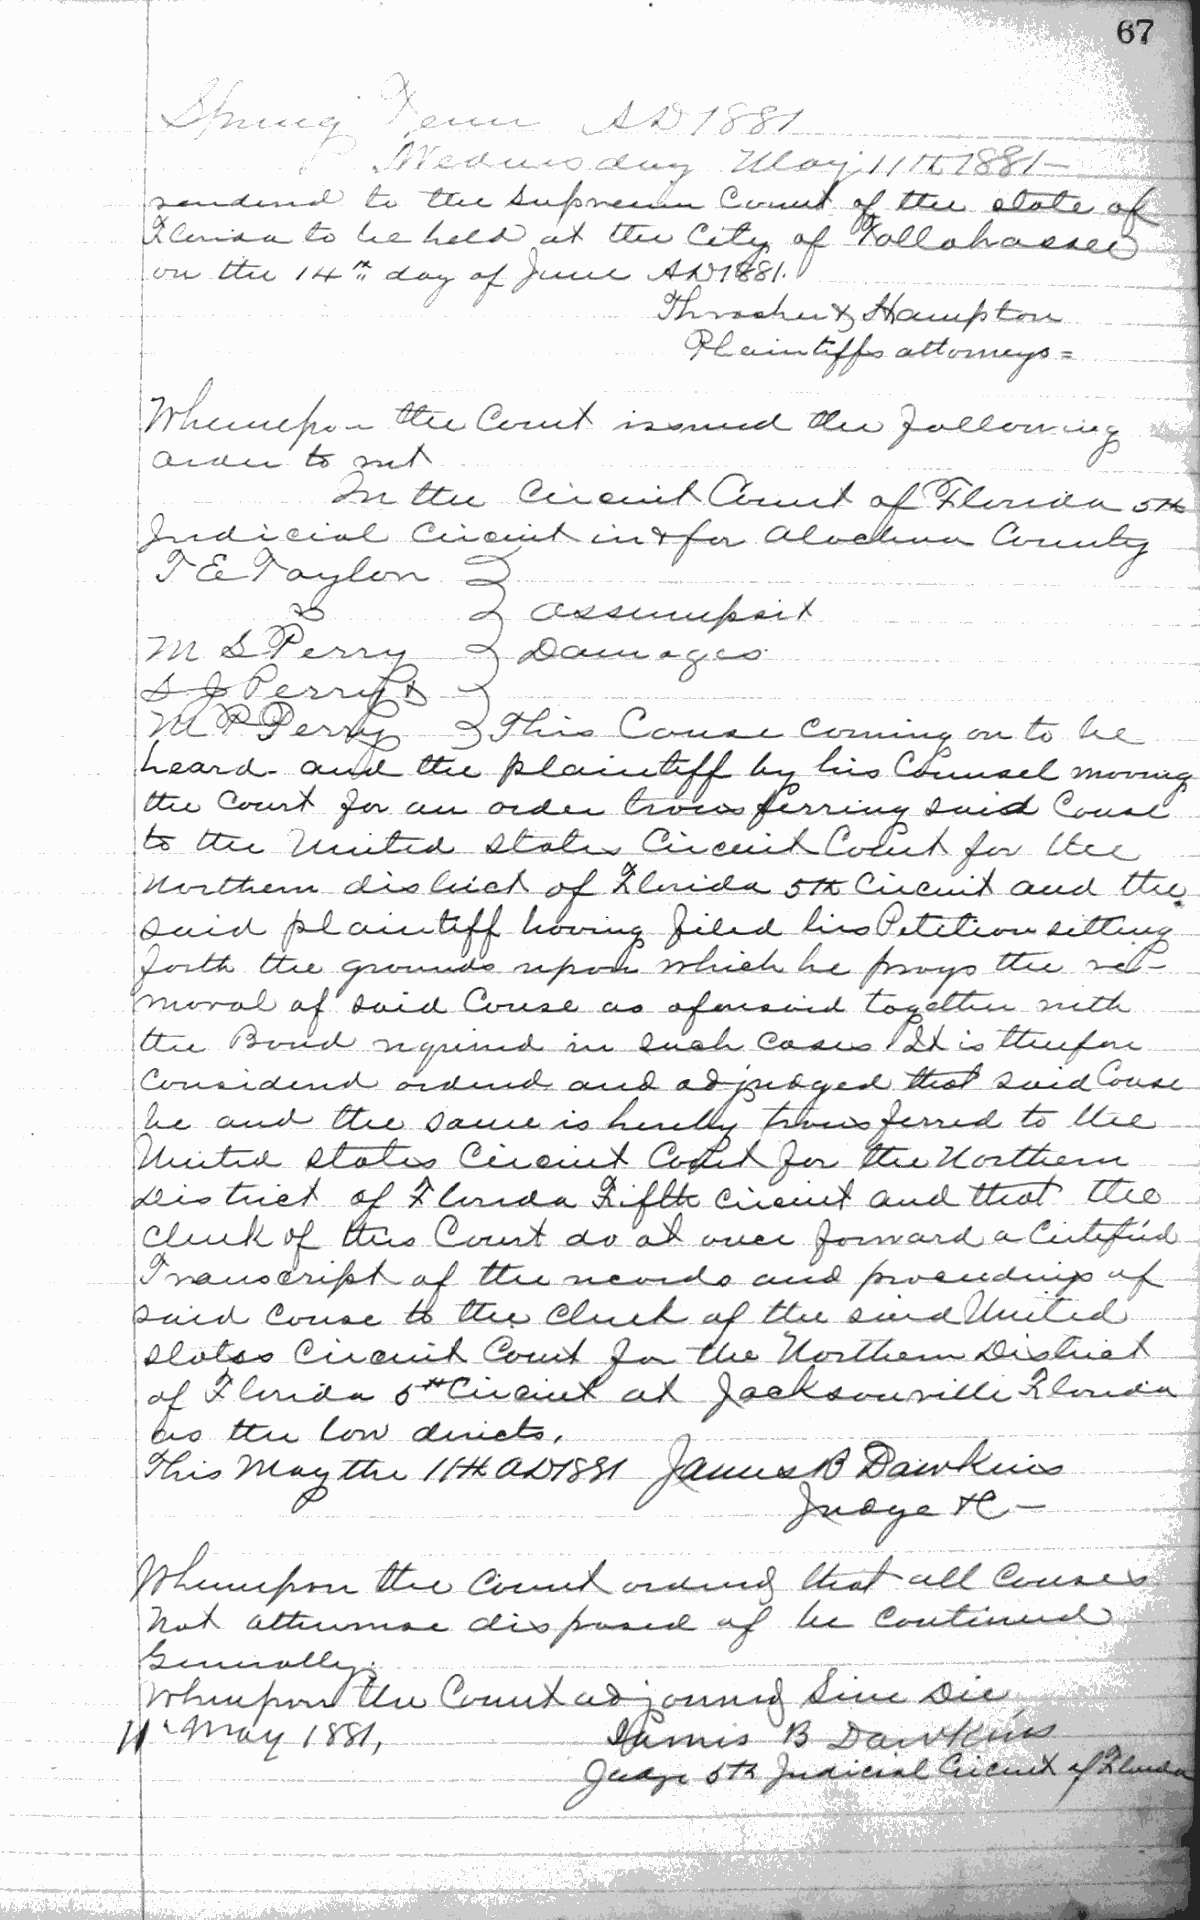 67
Spring Term AD 1881
Wednesday May 11th 1881-
rendered to the Supreme Court of the state of
Florida to be held at the City of Tallahassee
on the 14th day of June AD 1881.
Thrasher & Hampton
Plaintiffs attorneys=
Whereupon the Court issued the following
order to wit
In the Circuit Court of Florida 5th
Judicial Circuit in & for Alachua County
T E Taylor
vs } Assumpsit
M S Perry } Damages
S J Perry &
M P Perry } This Cause coming on to be
heard. and the plaintiff by his Counsel moving
the Court for an order transferring said Cause
to the United States Circuit Court for the
Northern district of Florida 5th Circuit and the
said plaintiff having filed his Petition setting
forth the grounds upon which he prays the re-
moval of said Cause as aforesaid together with
the Bond required in such cases It is therefore
Considered ordered and adjudged that said Cause
be and the same is hereby transferred to the
United States Circuit Court for the Northern
District of Florida Fifth Circuit and that the
Clerk of this Court do at once forward a Certified
Transcript of the records and proceedings of
said Cause to the Clerk of the said United
States Circuit Court for the Northern District
of Florida 5th Circuit at Jacksonville Florida
as the law directs.
This May the 11th AD 1881 James B Dawkins
Judge &c-
Whereupon the Court ordered that all Causes
not otherwise disposed of be continued
Generally.
Whereupon the Court adjourned Sine Die
11th May 1881, James B Dawkins
Judge 5th Judicial Circuit of Florida